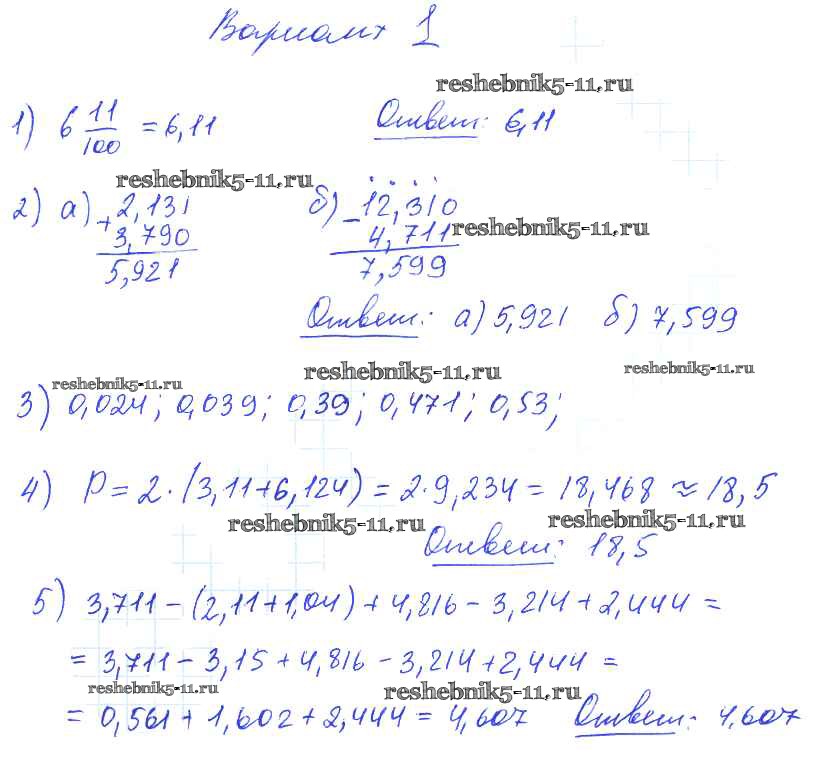 Вариант 1
reshebnik5-11.ru
1) 6 11/100 = 6,11 Ответ: 6,11
reshebnik5-11.ru
2) а) + 2,131 б) - 12,310
3,790 4,711 reshebnik5-11.ru
5,921 7,599
Ответ: а) 5,921 б) 7,599
reshebnik5-11.ru reshebnik5-11.ru reshebnik5-11.ru
3) 0,024; 0,039; 0,39; 0,471; 0,53;
4) P = 2·(3,11+6,124) = 2·9,234 = 18,468 ≈ 18,5
reshebnik5-11.ru reshebnik5-11.ru
Ответ: 18,5
5) 3,711 - (2,11+1,04) + 4,816 - 3,214 + 2,444 =
= 3,711 - 3,15 + 4,816 - 3,214 + 2,444 =
reshebnik5-11.ru reshebnik5-11.ru
= 0,561 + 1,602 + 2,444 = 4,607 Ответ: 4,607